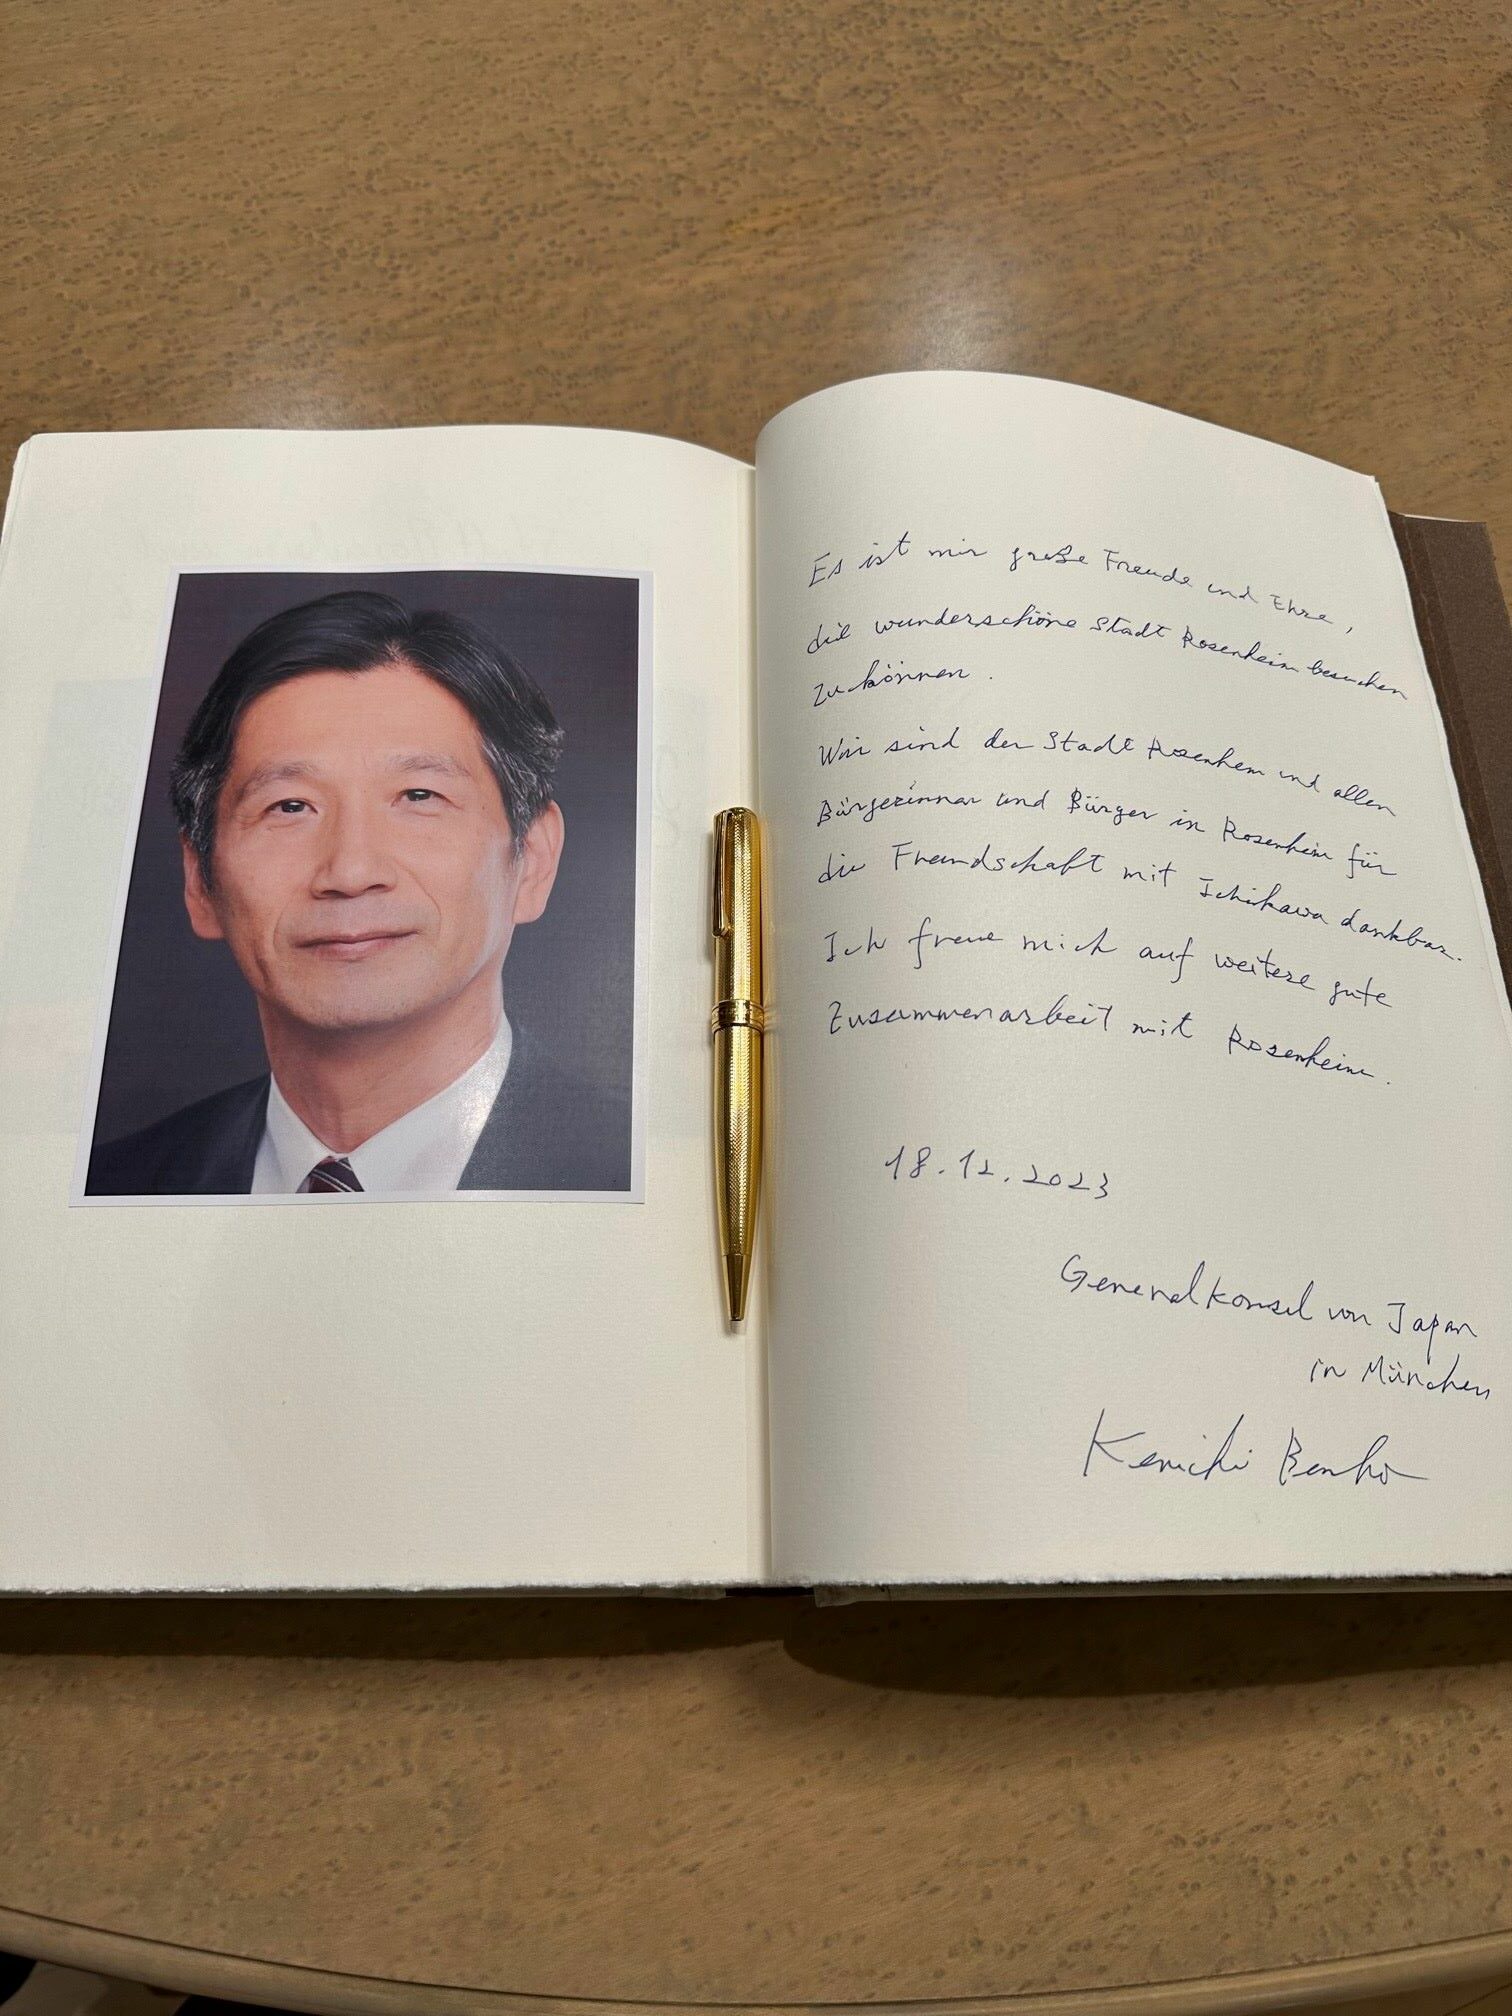 Es ist mir große Freude und Ehre,
die wunderschöne Stadt Rosenheim besuchen
zu können.
Wir sind der Stadt Rosenheim und allen
Bürgerinnen und Bürger in Rosenheim für
die Freundschaft mit Ichikawa dankbar.
Ich freue mich auf weitere gute
Zusammenarbeit mit Rosenheim.
18.12.2023
Generalkonsul von Japan
in München
Kenichi Bessho